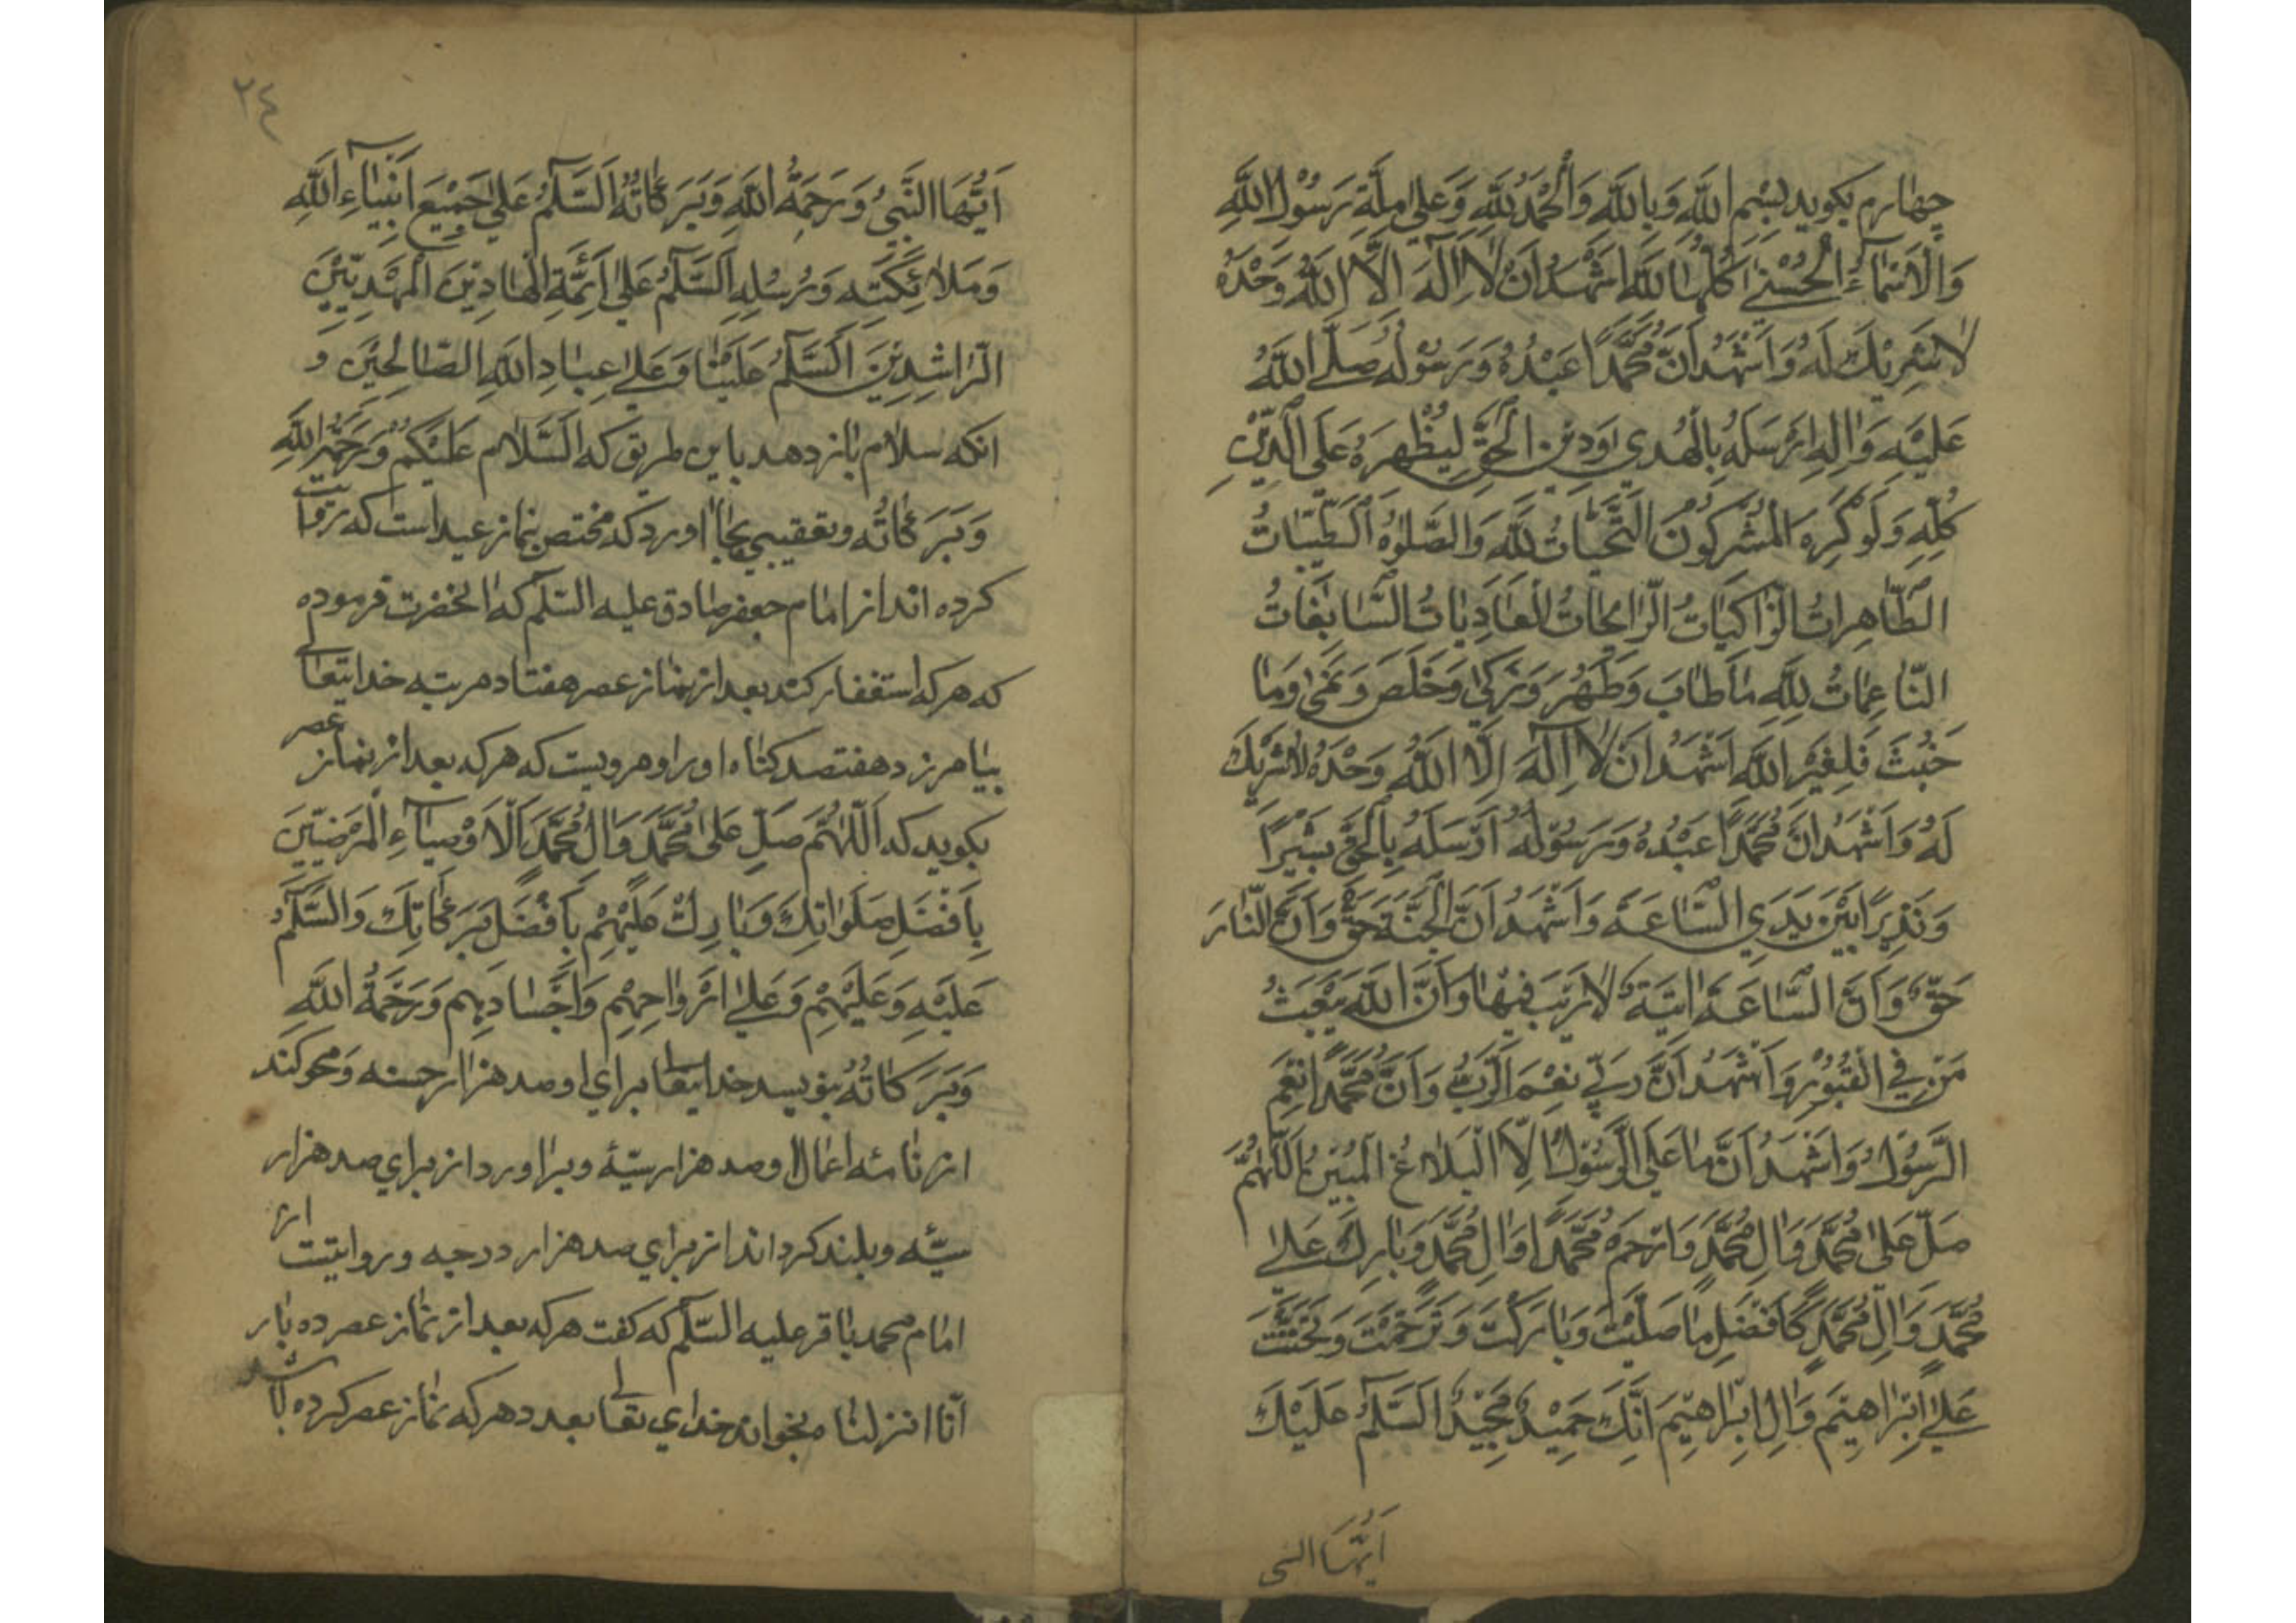 چهارم بکوید بِسْمِ اللَّهِ وَبِاللَّهِ وَالْحَمْدُ لِلَّهِ وَعَلىٰ مِلَّةِ رَسُوْلِ اللَّهِ
وَالْاَسْمَآءُ الْحُسْنىٰ كُلُّهَا لِلَّهِ اَشْهَدُ اَنْ لَا اِلٰهَ اِلَّا اللَّهُ وَحْدَهُ
لَا شَرِيْكَ لَهُ وَاَشْهَدُ اَنَّ مُحَمَّدًا عَبْدُهُ وَرَسُوْلُهُ صَلَّى اللَّهُ
عَلَيْهِ وَاٰلِهِ اَرْسَلَهُ بِالْهُدىٰ وَدِيْنِ الْحَقِّ لِيُظْهِرَهُ عَلَى الدِّيْنِ
كُلِّهِ وَلَوْ كَرِهَ الْمُشْرِكُوْنَ التَّحِيَّاتُ لِلَّهِ وَالصَّلَوٰةُ الطَّيِّبَاتُ
الطَّاهِرَاتُ الزَّاكِيَاتُ الرَّايِحَاتُ الْغَادِيَاتُ السَّابِغَاتُ
النَّاعِمَاتُ لِلَّهِ مَا طَابَ وَطَهُرَ وَزَكىٰ وَخَلَصَ وَنَمىٰ وَمَا
خَبُثَ فَلِغَيْرِ اللَّهِ اَشْهَدُ اَنْ لَا اِلٰهَ اِلَّا اللَّهُ وَحْدَهُ لَا شَرِيْكَ
لَهُ وَاَشْهَدُ اَنَّ مُحَمَّدًا عَبْدُهُ وَرَسُوْلُهُ اَرْسَلَهُ بِالْحَقِّ بَشِيْرًا
وَنَذِيْرًا بَيْنَ يَدَيِ السَّاعَةِ وَاَشْهَدُ اَنَّ الْجَنَّةَ حَقٌّ وَاَنَّ النَّارَ
حَقٌّ وَاَنَّ السَّاعَةَ اٰتِيَةٌ لَا رَيْبَ فِيْهَا وَاَنَّ اللَّهَ يَبْعَثُ
مَنْ فِي الْقُبُوْرِ وَاَشْهَدُ اَنَّ رَبِّي نِعْمَ الرَّبُّ وَاَنَّ مُحَمَّدًا نِعْمَ
الرَّسُوْلُ وَاَشْهَدُ اَنَّ مَا عَلَى الرَّسُوْلِ اِلَّا الْبَلَاغُ الْمُبِيْنُ اَللّٰهُمَّ
صَلِّ عَلىٰ مُحَمَّدٍ وَاٰلِ مُحَمَّدٍ وَارْحَمْ مُحَمَّدًا وَاٰلِ مُحَمَّدٍ وَبَارِكْ عَلىٰ
مُحَمَّدٍ وَاٰلِ مُحَمَّدٍ كَاَفْضَلِ مَا صَلَّيْتَ وَبَارَكْتَ وَتَرَحَّمْتَ وَتَحَنَّنْتَ
عَلىٰ اِبْرَاهِيْمَ وَاٰلِ اِبْرَاهِيْمَ اِنَّكَ حَمِيْدٌ مَجِيْدٌ اَلسَّلَمُ عَلَيْكَ
اَيُّهَا النبي
٢٤
اَيُّهَا النَّبِيُّ وَرَحْمَةُ اللَّهِ وَبَرَكَاتُهُ اَلسَّلَمُ عَلىٰ جَمِيْعِ اَنْبِيَآءِ اللَّهِ
وَمَلَائِكَتِهِ وَرُسُلِهِ اَلسَّلَمُ عَلىٰ اَئِمَّةِ الْهَادِيْنَ الْمَهْدِيِّيْنَ
الرَّاشِدِيْنَ اَلسَّلَمُ عَلَيْنَا وَعَلىٰ عِبَادِ اللَّهِ الصَّالِحِيْنَ وَ
انکه سلام باز دهد باین طریق که اَلسَّلَام عَلَيْكُمْ وَرَحْمَةُ اللَّهِ
وَبَرَكَاتُه وتعقیبی بجا اورد که مختص نماز عیداست که روایت
کرده اند از امام جعفر صادق علیه السّلم که انحضرت فرموده
که هرکه استغفار کند بعد از نماز عصر هفتاد مرتبه خدایتعالی
بیامرزد هفتصد کناه او را ومرویست که هرکه بعد از نماز عصر
بکوید که اَللّٰهُمَّ صَلِّ عَلىٰ مُحَمَّدٍ وَاٰلِ مُحَمَّدٍ اَلْاَوْصِيَآءِ الْمَرْضِيِّيْنَ
بِاَفْضَلِ صَلَوَاتِكَ وَبَارِكْ عَلَيْهِمْ بِاَفْضَلِ بَرَكَاتِكَ وَالسَّلَمُ
عَلَيْهِ وَعَلَيْهِمْ وَعَلىٰ اَرْوَاحِهِمْ وَاَجْسَادِهِم وَرَحْمَةُ اللَّهِ
وَبَرَكَاتُهُ بنویسد خدایتعالی برای او صد هزار حسنه ومحو کند
از نامۀ اعمال او صد هزار سیّئه وبراورد از برای صد هزار
سیّئه وبلند کرداند از برای صد هزار درجه وروایتیست از
امام محمد باقر علیه السّلم که کفت هرکه بعد از نماز عصر ده بار
انّا انزلنا بخواند خدای تعالی بعدد هرکه نماز عصر کرده باشد